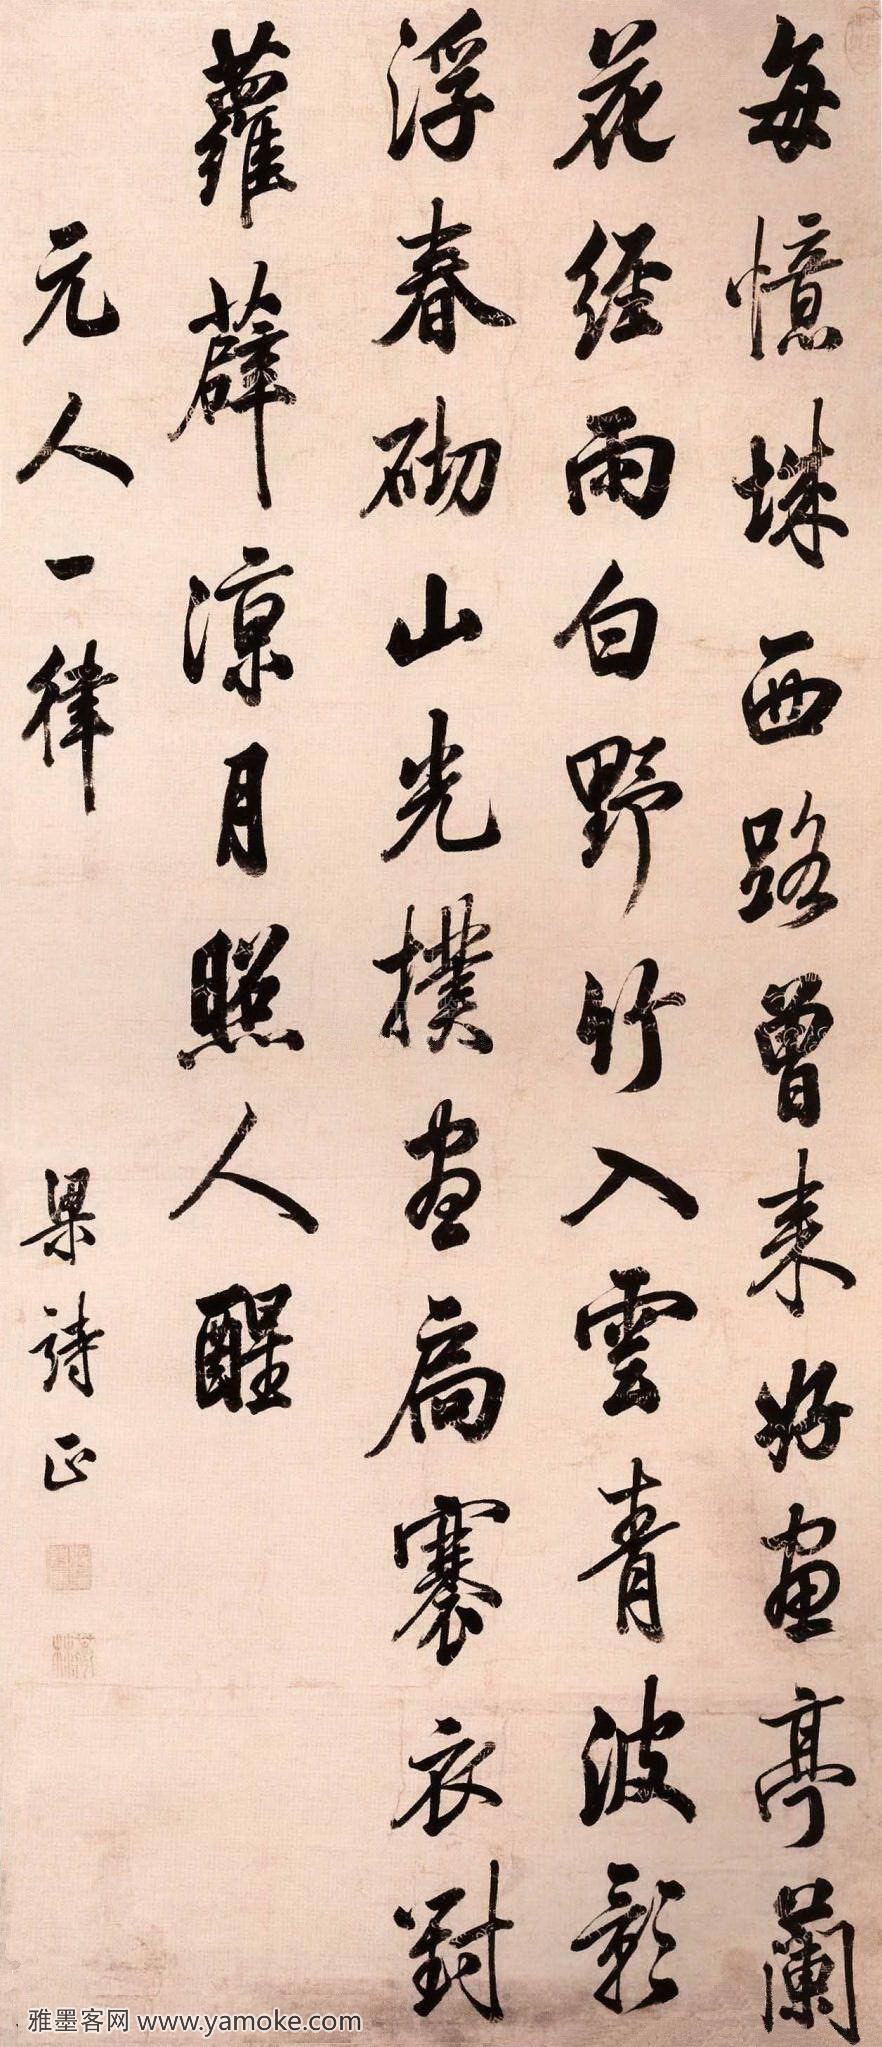 每憶城西路曾来好画亭蘭
花經雨白野竹入雲青波影
浮春砌山光撲画扃褰衣對
蘿薜涼月照人醒
元人一律
梁詩正
雅墨客网 www.yamoke.com